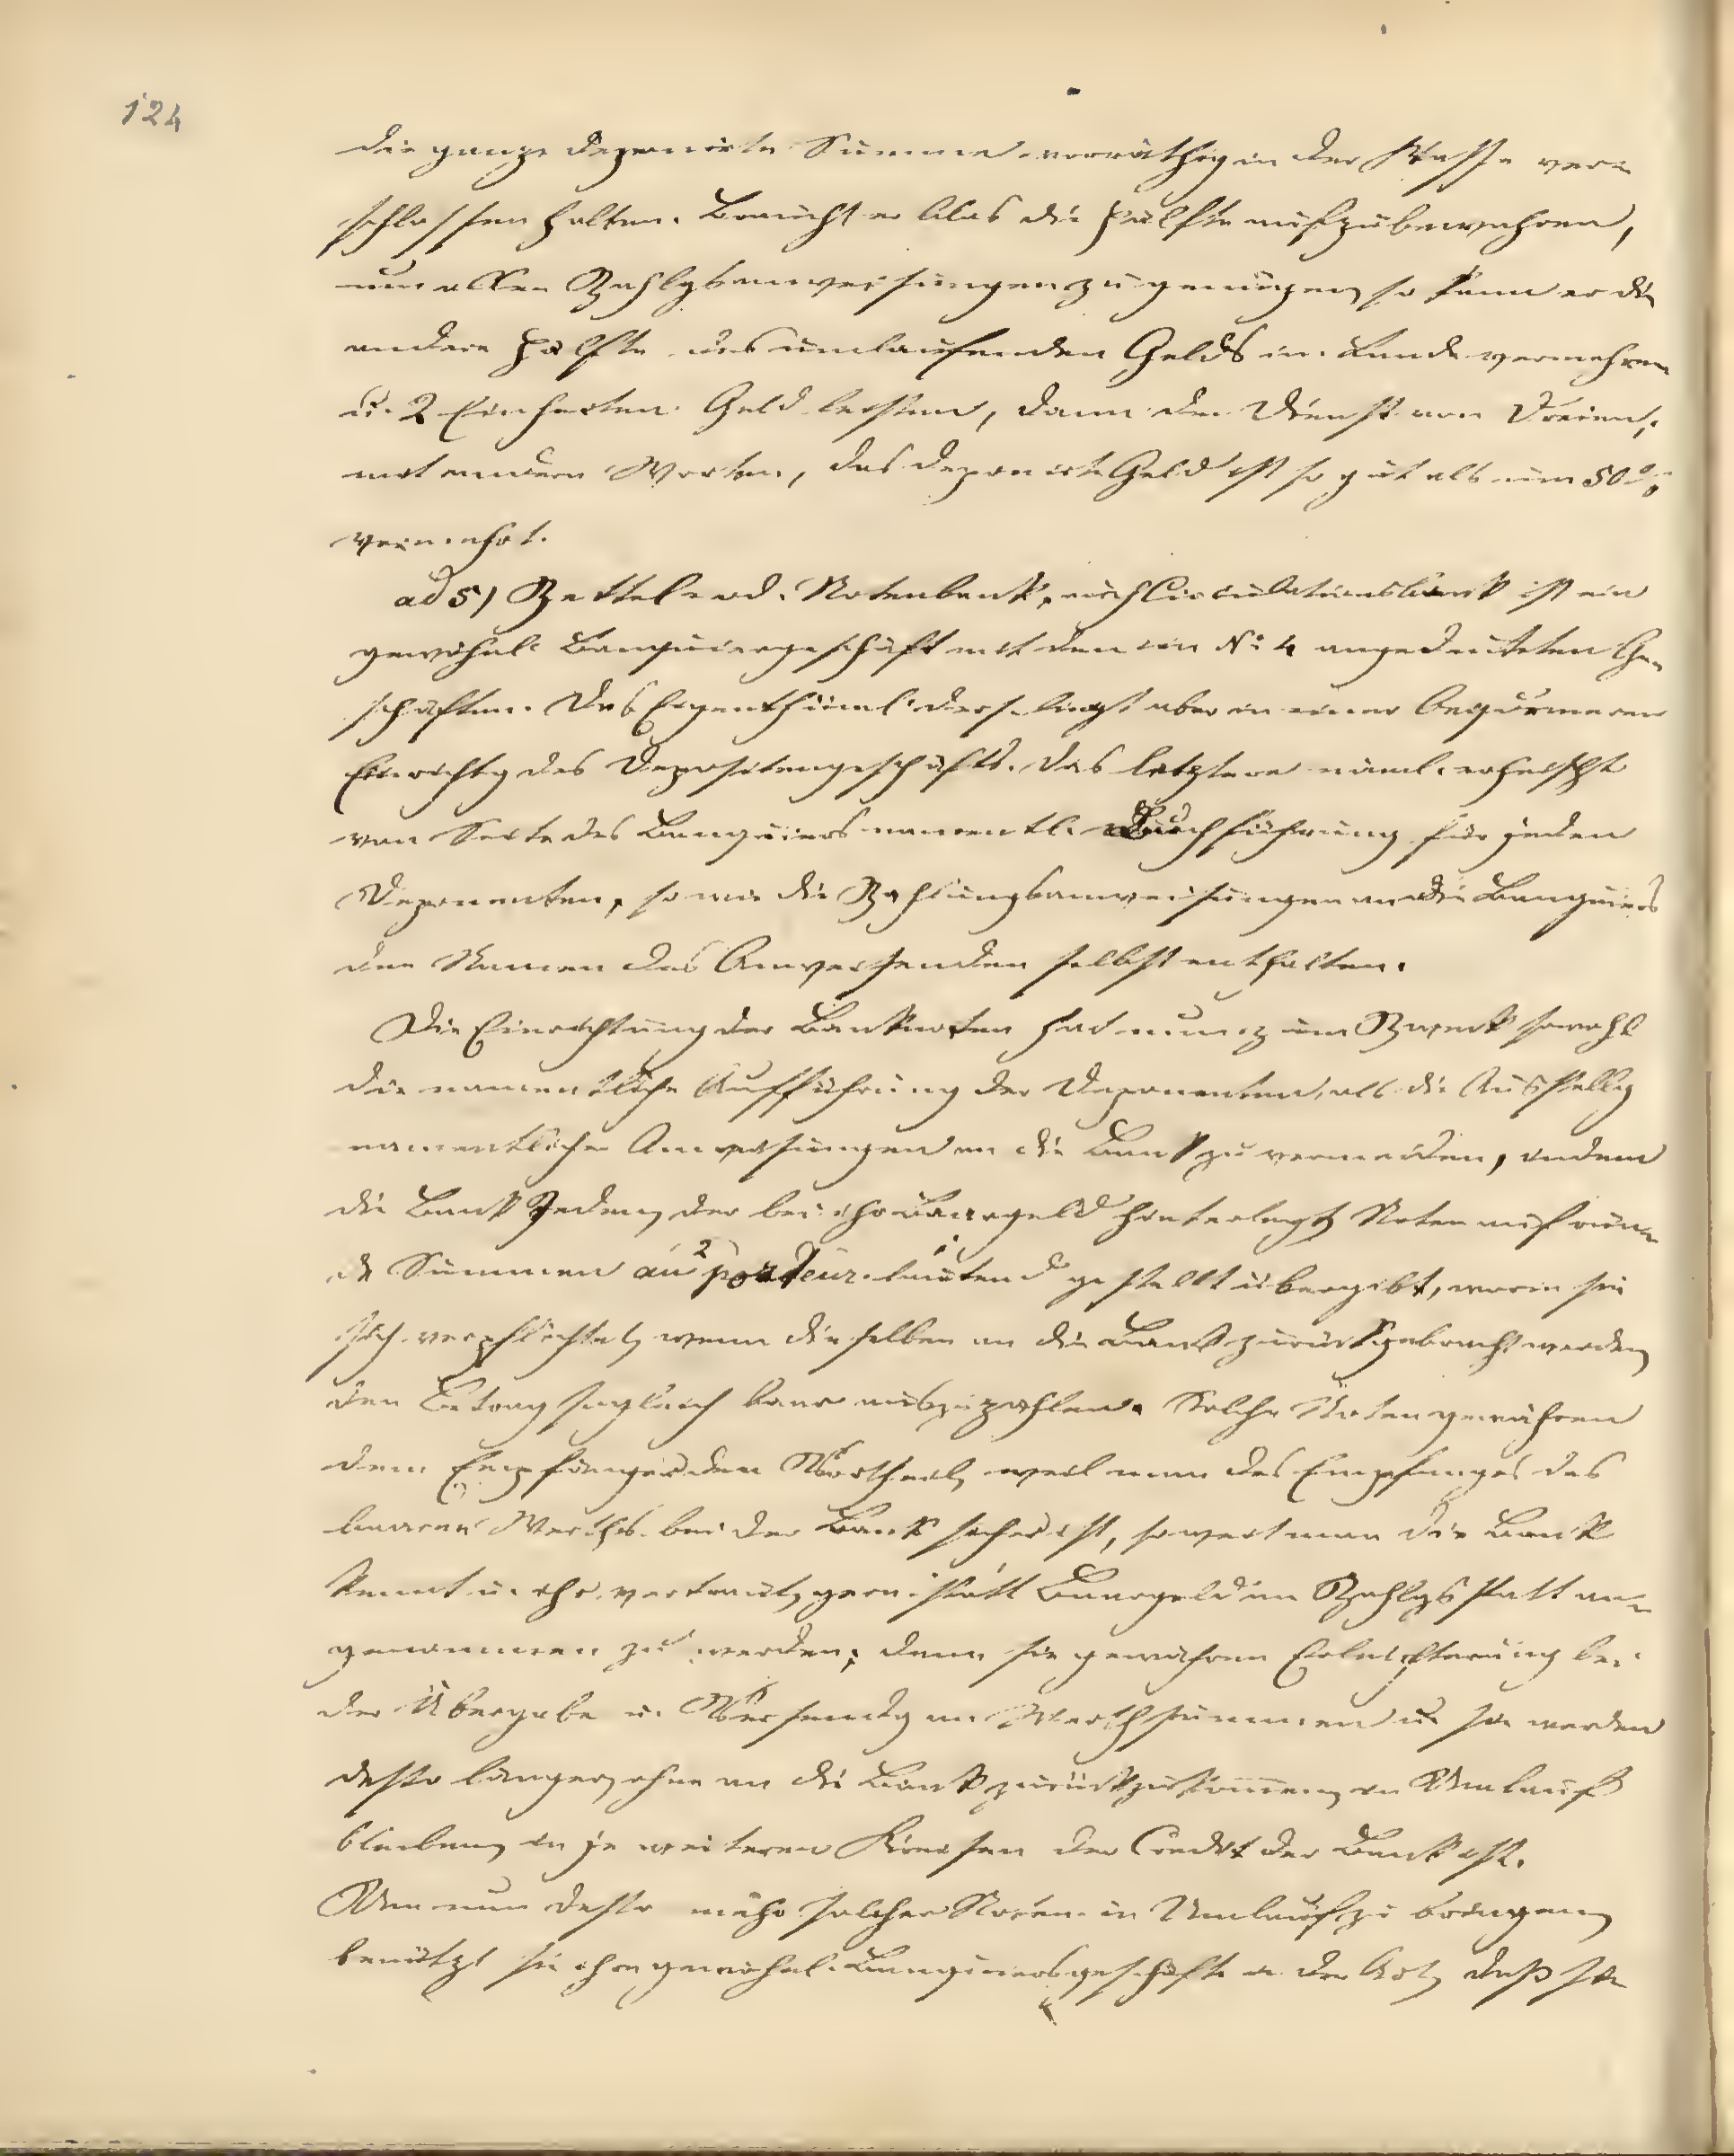 124
die ganze deponirte Summe vorräthig in der Kasse ver-
schlossen halten. Braucht er blos die Hälfte aufzubewahren,
um allen Zahlgsanweisungen zu genügen so kann er die
andere Hälfte des umlaufenden Gelds im Lande vermehren
u. 2 Einheiten Geld leisten, dann den Dienst von Dreien,
mit andern Worten, das deponirte Geld ist so gut als um 50%
vermehrt.
ad 5) Zettel- od. Notenbank, auch Circulationsbank ist ein
gewöhnl. Banquiergeschäft mit den in No 4 angedeuteten Ge-
schäften. Das Eigenthüml. ders. liegt aber in einer bequemeren
Einrichtg des Depositengeschäfts. Das letztere näml. erheischt
von Seite des Banquiers namentl. Buchführung für jeden
Deponenten, so wie die Zahlungsanweisungen an die Banquiers
den Namen des Anweisenden selbst enthalten.
Die Einrichtung der Banknoten hat nun zum Zweck sowohl
die namentliche Aufführung der Deponenten, als die Ausstellg
namentlicher Anweisungen an die Bank zu vermeiden, indem
die Bank Jedem, der bei ihr Baargeld hinterlegt, Noten auf run-
de Summen au porteur lautend gestellt übergibt, worin sie
sich verpflichtet, wenn dieselben an die Bank zurückgebracht werden
den Betrag sogleich baar auszuzahlen. Solche Noten gewähren
dem Empfänger den Vortheil, weil man des Empfanges des
baaren Werths bei der Bank sicher ist, soweit man die Bank
kennt u. ihr vertraut, gern statt Baargeld an Zahlgs statt an-
genommen zu werden; denn sie gewähren Erleichterung bei
der Übergabe u. Versendg von Werthsummen u. sie werden
desto länger, ohne an die Bank zurückzukommen, in Umlauf
bleiben, in je weiteren Kreisen der Credit der Bank ist.
Um nun desto mehr solcher Noten in Umlauf zu bringen,
benützt sie ihre gewöhnl. Banquiersgeschäfte in der Art, daß sie